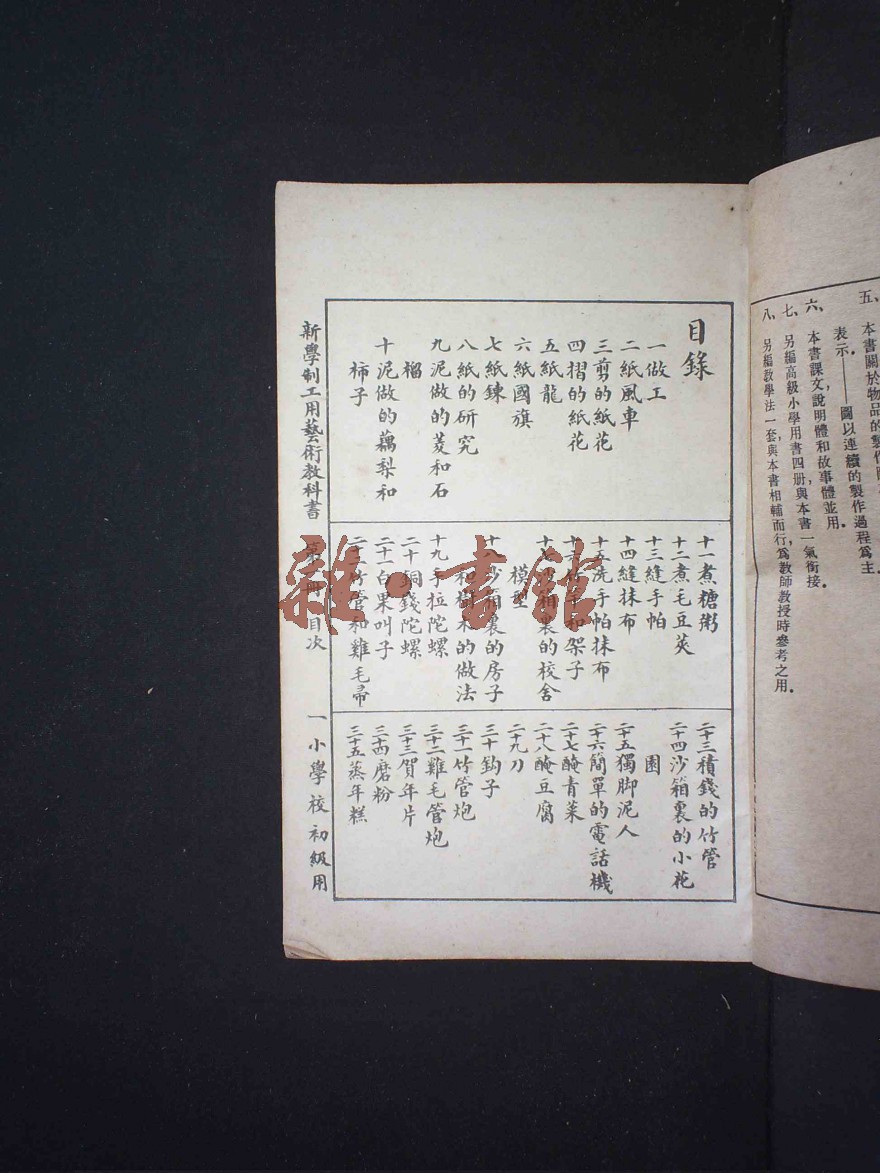 五、本書關於物品的製作
表示。——圖以連續的製作過程爲主。
六、本書課文說明體和故事體並用。
七、另編高級小學用書四册，與本書一氣銜接。
八、另編教學法一套，與本書相輔而行，爲教師教授時參考之用。
目錄
一做工
二紙風車
三剪的紙花
四摺的紙花
五紙龍
六紙國旗
七紙鍊
八紙的研究
九泥做的菱和石
榴
十泥做的藕梨和
柿子
十一煮糖粥
十二煮毛豆莢
十三縫手帕
十四縫抹布
十五洗手帕抹布
和架子
沙箱裏的校舍
模型
十八沙箱裏的房子
和樹木的做法
十九手拉陀螺
二十銅錢陀螺
二十一白果叫子
二十二竹管和雞毛帚
二十三積錢的竹管
二十四沙箱裏的小花
園
二十五獨脚泥人
二十六簡單的電話機
二十七醃青菜
二十八醃豆腐
二十九刀
三十鈎子
三十一竹管炮
三十二雞毛管炮
三十三賀年片
三十四磨粉
三十五蒸年糕
新學制工用藝術教科書 第 册 目次 一 小學校初級用
雜·書館